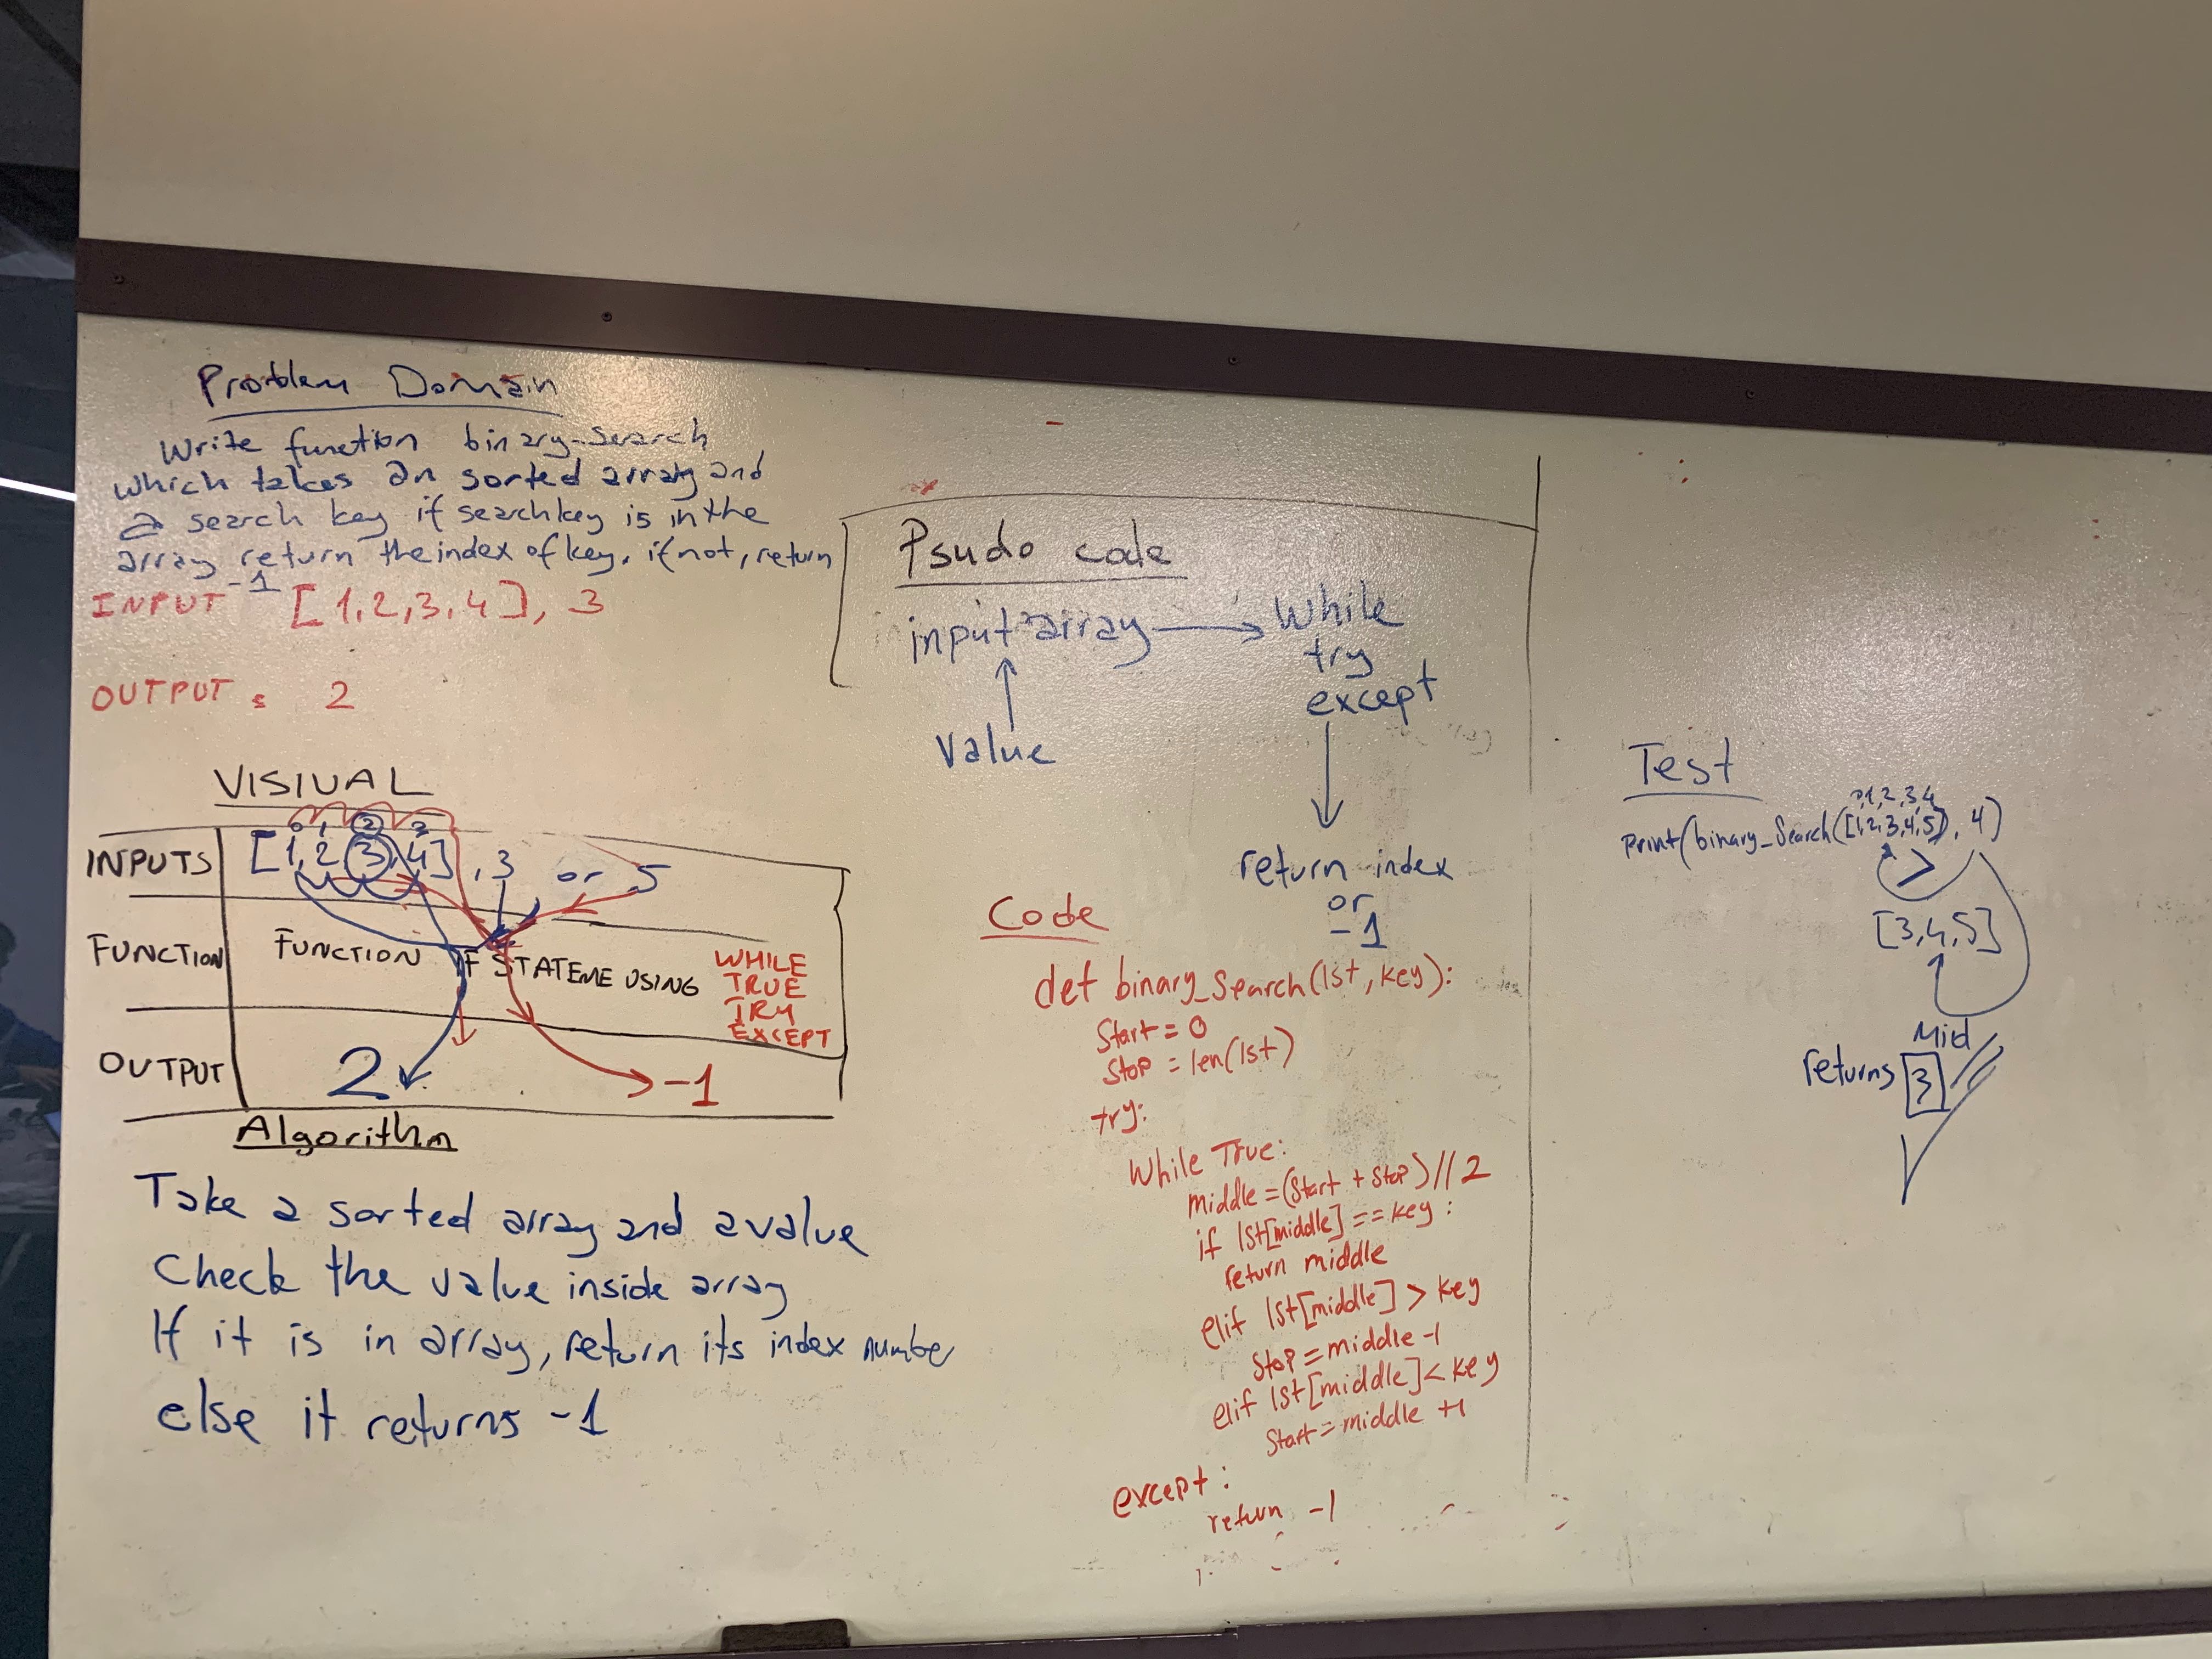 Problem Domain
Write function binary-search
which takes an sorted array and
a search key if searchkey is in the
array return the index of key. if not, return
-1
INPUT [1,2,3,4], 3
OUTPUT : 2
VISIUAL
0 1 2 3
INPUTS [1,2,3,4], 3 or 5
FUNCTION FUNCTION IF STATEME USING
WHILE
TRUE
TRY
EXCEPT
OUTPUT 2 -1
Algorithm
Take a sorted array and a value
Check the value inside array
If it is in array, return its index number
else it returns -1
Psudo code
input array → While
try
except
Value
return index
or
-1
Code
def binary_search(lst, key):
Start = 0
Stop = len(lst)
try:
While True:
middle = (Start + Stop) // 2
if lst[middle] == key :
return middle
elif lst[middle] > key
Stop = middle -1
elif lst[middle] < key
Start = middle +1
except :
return -1
Test
0,1,2,3,4
Print(binary_Search([1,2,3,4,5]), 4)
>
[3,4,5]
Mid
returns 3